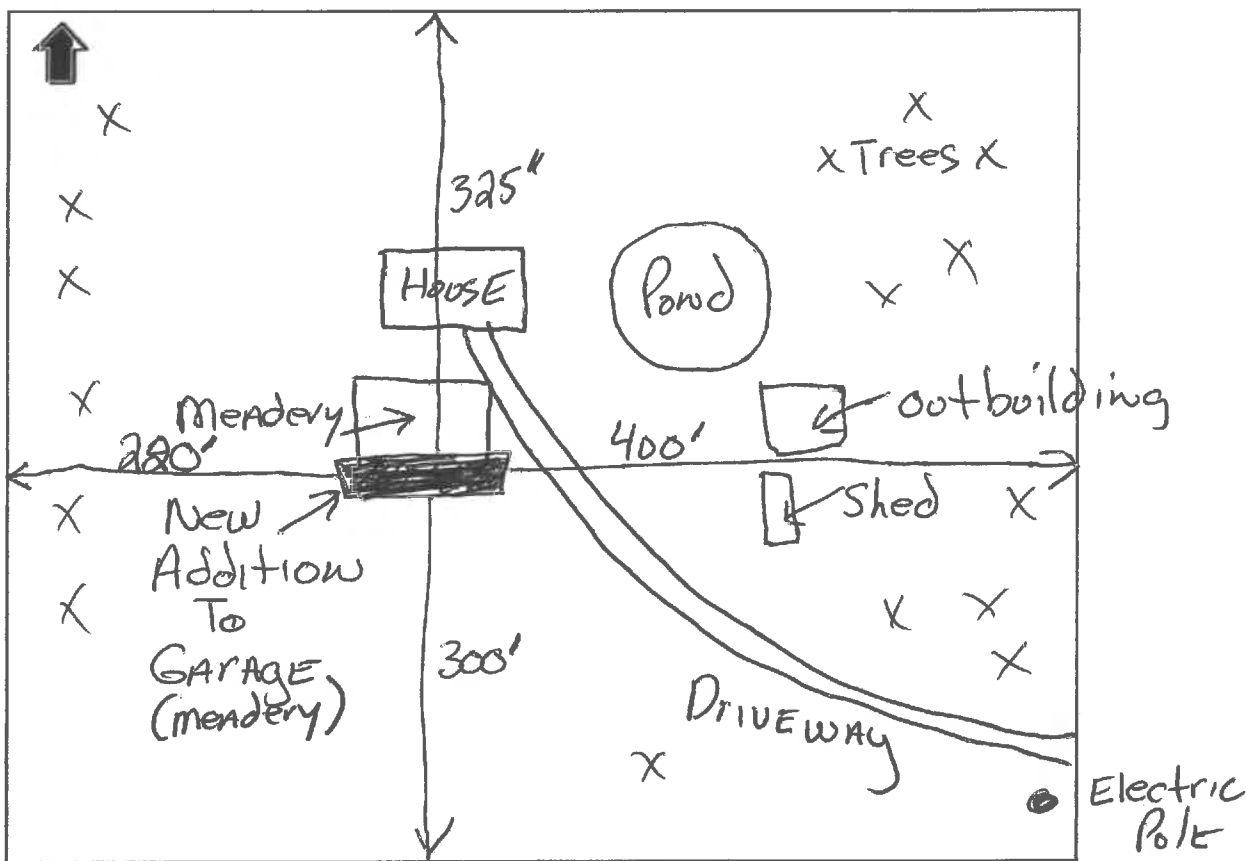 x Trees x
325"
HousE
Pond
Meadery
outbuilding
220'
400'
New
Addition
To
GARAGE
(meadery)
Shed
300'
DRIVEWAY
Electric
Pole